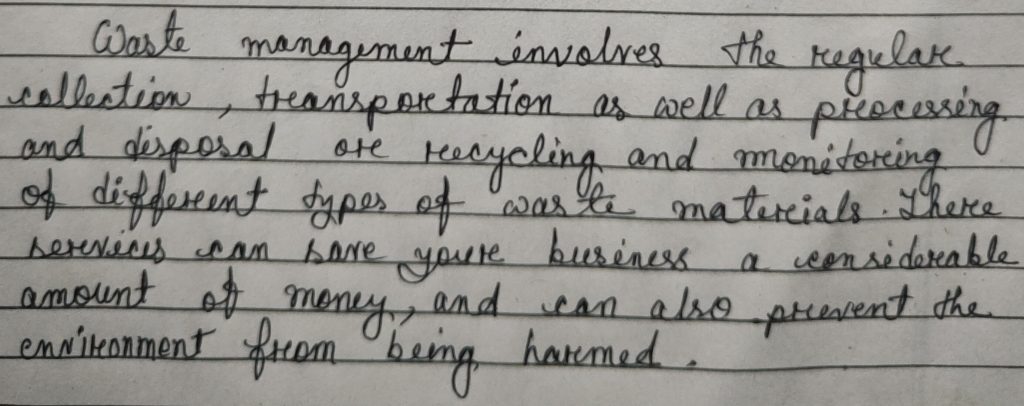 Waste management involves the regular
collection, transportation as well as processing
and disposal or recycling and monitoring
of different types of waste materials. There
services can save your business a considerable
amount of money, and can also prevent the
environment from being harmed.